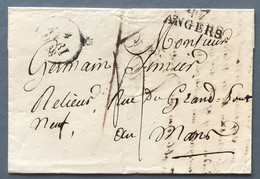 47
ANGERS
Monsieur
Germain
Relieur, Rue du Grand-Pont
Neuf,
au Mans